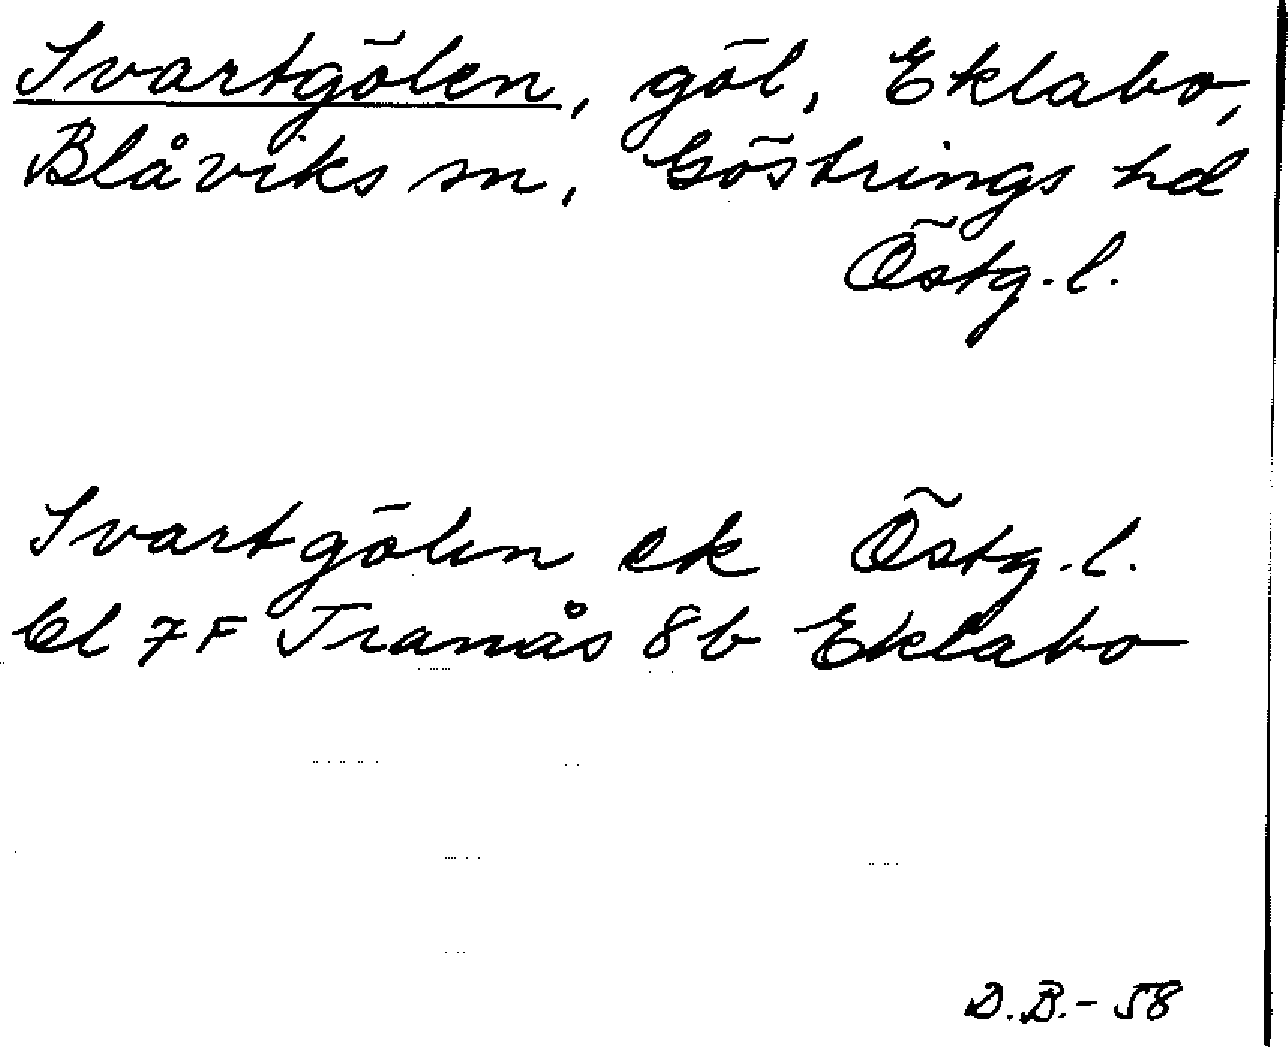 Svartgölen, göl, Eklabo,
Blåviks sn, Göstrings hd
Östg.l.
Svartgölen ek Östg.l.
bl 7F Tranås 8b Eklabo
D.B.-58